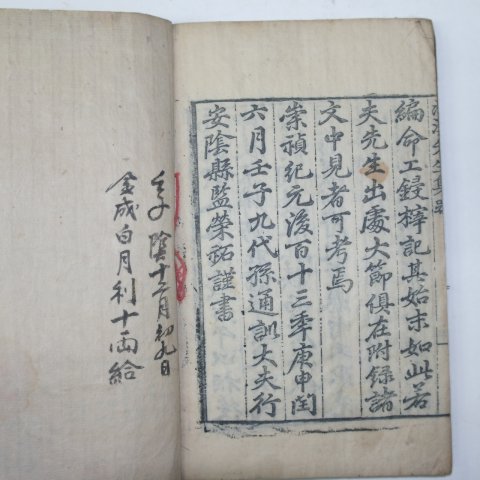 編命工鋟梓記其始末如此若
夫先生出處大節俱在附録諸
文中見者可考焉
崇禎紀元後百十三年庚申閏
六月壬子九代孫通訓大夫行
安陰縣監榮祏謹書
壬子 陰十二月初九日
金成白月利十両給